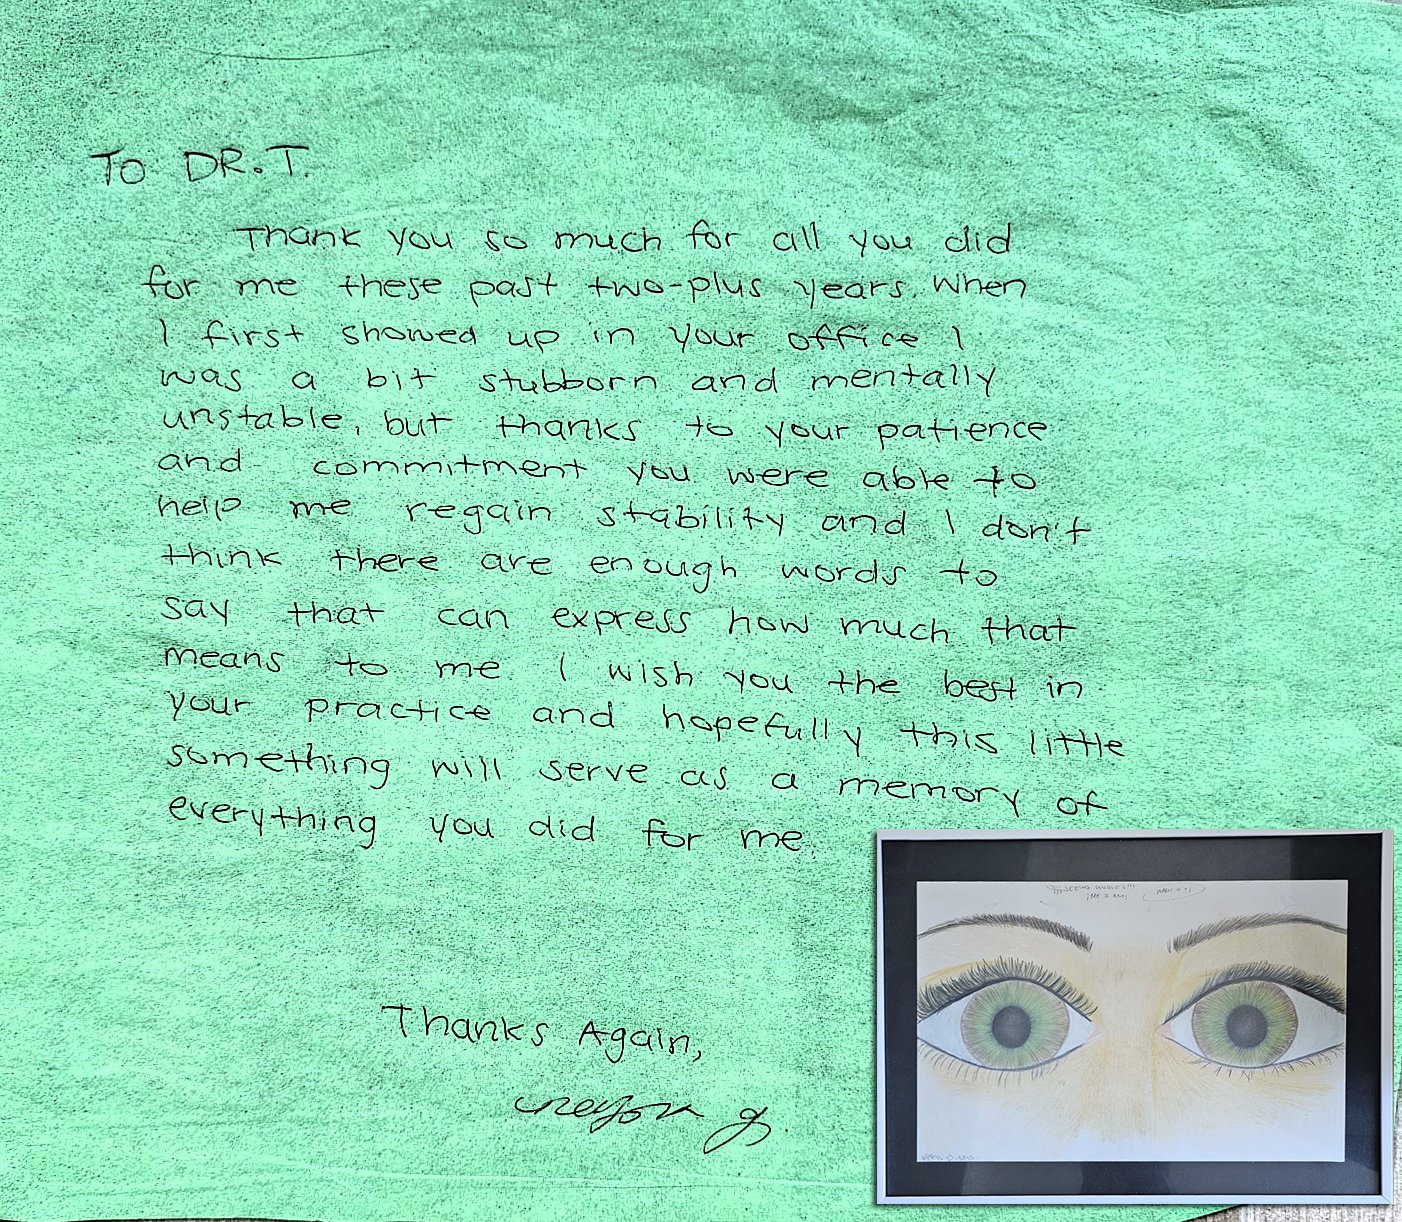 TO DR. T.
Thank you so much for all you did
for me these past two-plus years. When
I first showed up in your office I
was a bit stubborn and mentally
unstable, but thanks to your patience
and commitment you were able to
help me regain stability and I don't
think there are enough words to
say that can express how much that
means to me. I wish you the best in
your practice and hopefully this little
something will serve as a memory of
everything you did for me.
Thanks Again,
SEEING DOUBLE